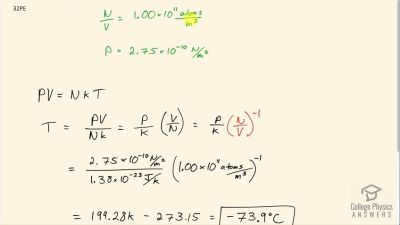 32PE
N/V = 1.00 × 10^11 atoms/m^3
P = 2.75 × 10^-10 N/m^2
PV = NkT
T = PV/Nk = P/k (V/N) = P/k (N/V)^-1
= 2.75 × 10^-10 N/m^2 / 1.38 × 10^-23 J/k (1.00 × 10^11 atoms/m^3)^-1
= 199.28k - 273.15 = -73.9°C
College Physics
ANSWERS